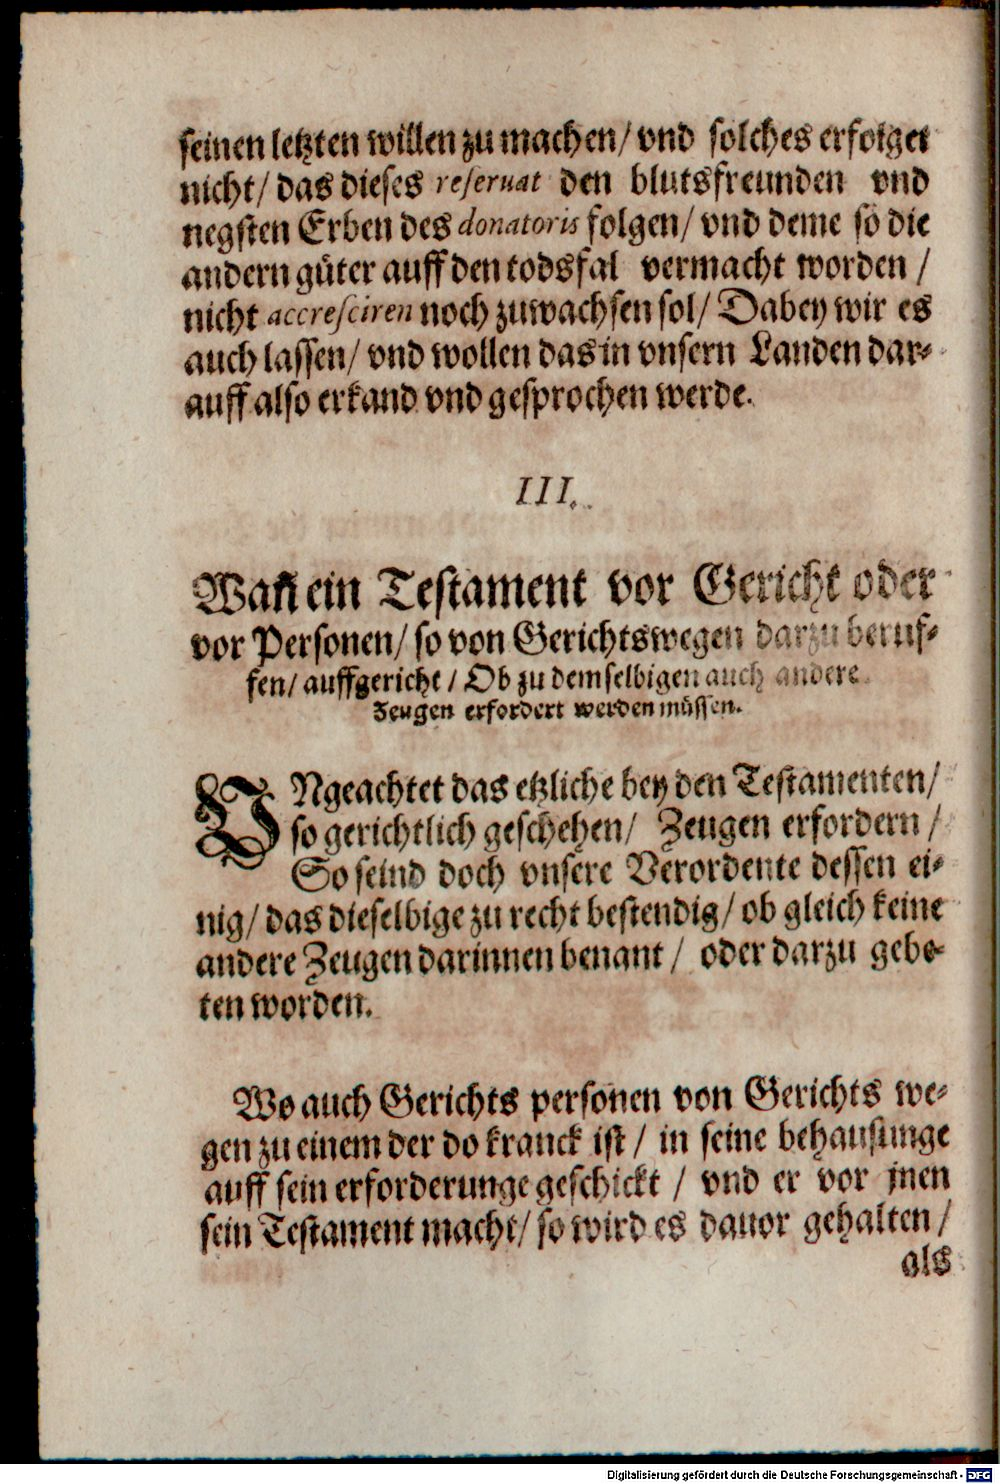 seinen letzten willen zu machen/ vnd solches erfolget
nicht/ das dieses reseruat den blutsfreunden vnd
negsten Erben des donatoris folgen/ vnd deme so die
andern güter auff den todsfal vermacht worden /
nicht accresciren noch zuwachsen sol/ Dabey wir es
auch lassen/ vnd wollen das in vnsern Landen dar-
auff also erkand vnd gesprochen werde.
III.
Wañ ein Testament vor Gericht oder
vor Personen/ so von Gerichtswegen darzu beruf-
fen/ auffgericht / Ob zu demselbigen auch andere
Zeugen erfordert werden müssen.
VNgeachtet das etzliche bey den Testamenten/
so gerichtlich geschehen/ Zeugen erfordern /
So seind doch vnsere Verordente dessen ei-
nig/ das dieselbige zu recht bestendig/ ob gleich keine
andere Zeugen darinnen benant / oder darzu gebe-
ten worden.
Wo auch Gerichts personen von Gerichts we-
gen zu einem der do kranck ist / in seine behausunge
auff sein erforderunge geschickt / vnd er vor jnen
sein Testament macht/ so wird es dauor gehalten /
als
Digitalisierung gefördert durch die Deutsche Forschungsgemeinschaft - DFG